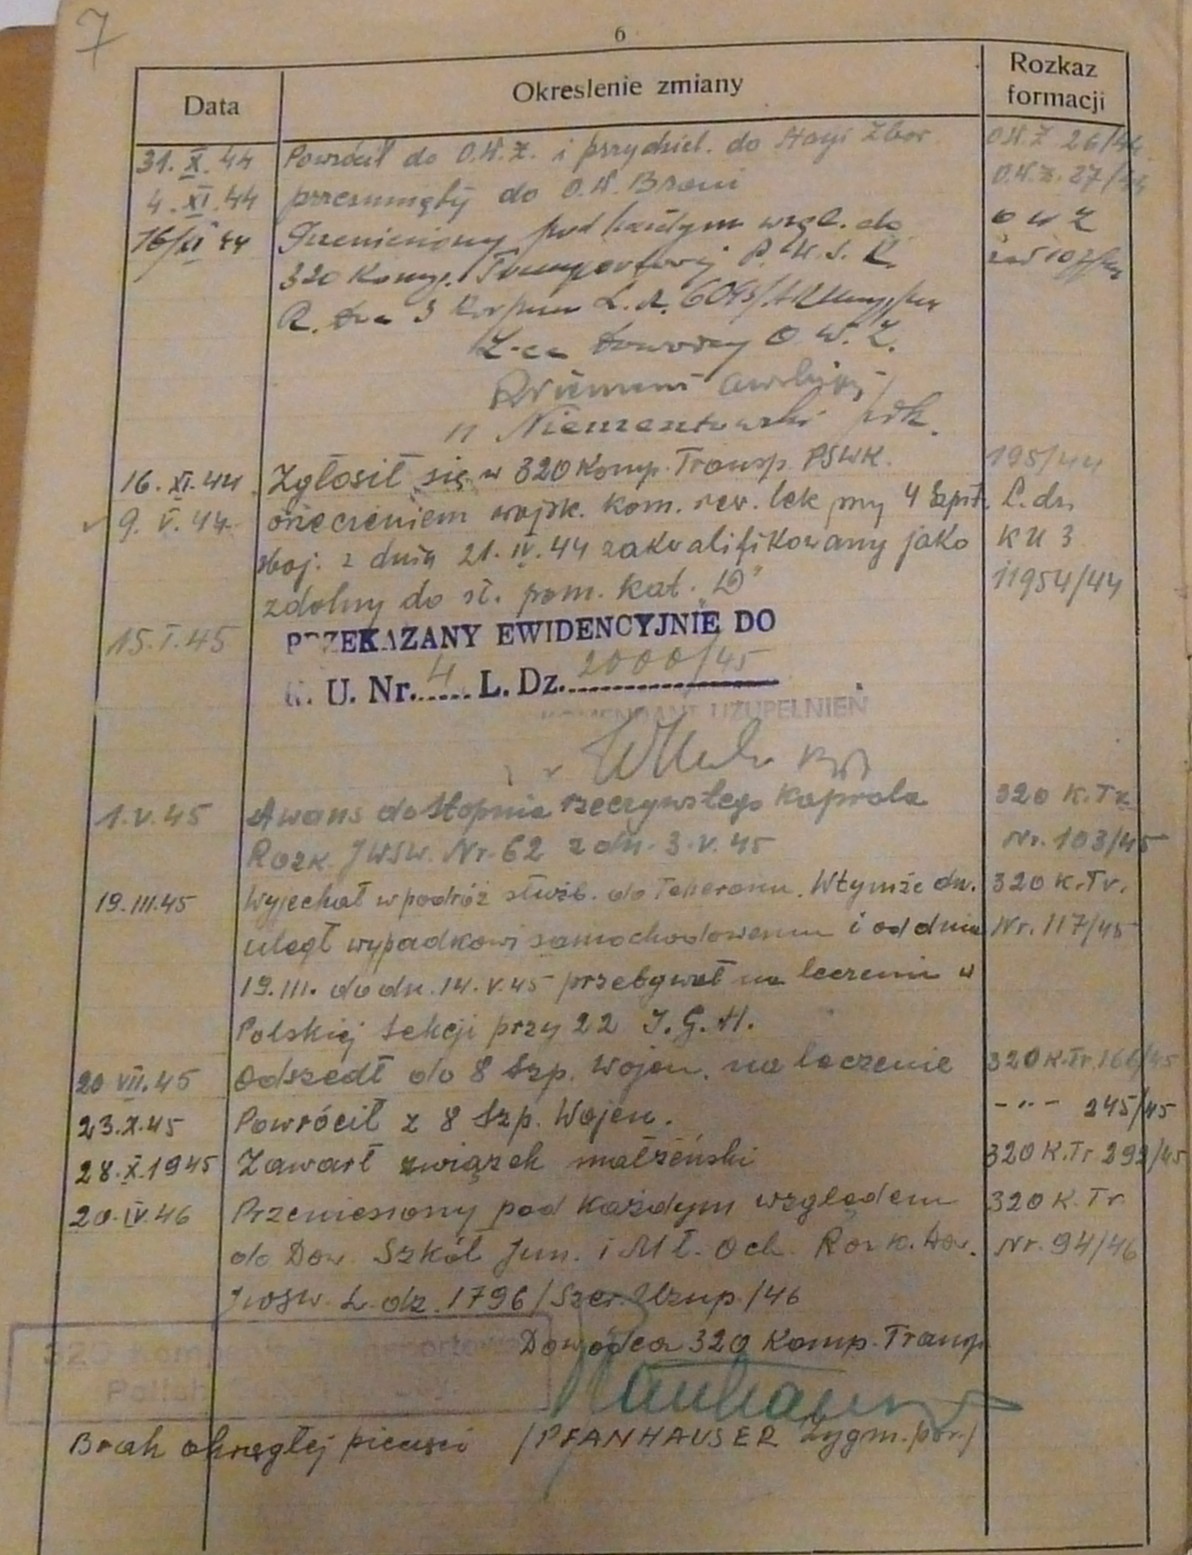 7
6
Data Okreslenie zmiany Rozkaz formacji
31.X.44 Powrócił do O.W.Z. i przydziel. do Stacji Zbor. O.W.Z. 26/44
4.XI.44 przesunięty do O.W. Broni O.W.Z. 27/44
16/XI 44 pod każdym wzgl. do O W Z
320 Komp. Transportowej P.W.S.K.
R. 3 Korpusu L.d. 6095/
Z-ca Dowódcy O.W.Z.
Niementowski płk.
16.XI.44 Zgłosił się w 320 Komp. Transp. PSWK. 195/44
9.V.44 orzeczeniem wojsk. kom. rew. lek. przy 4 Szpit. L.dz.
woj. z dnia 21.IV.44 zakwalifikowany jako KU 3
zdolny do sł. pom. kat. "D" 11954/44
15.I.45 PRZEKAZANY EWIDENCYJNIE DO
K. U. Nr. 4 L. Dz. 2000/45
KOMENDANT UZUPEŁNIEŃ
1.V.45 Awans do stopnia rzeczywstego Kaprala 320 K.Tr.
Rozk. JWSW. Nr. 62 z dn. 3.V.45 Nr. 103/45
19.III.45 Wyjechał w podróż służb. do Teheranu. W tymże dn. 320 K.Tr.
uległ wypadkowi samochodowemu i od dnia Nr. 117/45
19.III. do dn. 14.V.45 przebywał na leczeniu w
Polskiej Sekcji przy 22 I.G.H.
20 VII.45 Odszedł do 8 Szp. Wojen. na leczenie 320 K.Tr. 166/45
23.X.45 Powrócił z 8 Szp. Wojen. - " - 245/45
28.X.1945 Zawarł związek małżeński 320 K.Tr. 292/45
20.IV.46 Przeniesiony pod każdym względem 320 K.Tr
do Dow. Szkół Jun. i Mł. Och. Rozk. Dow. Nr. 94/46
JWSW. L.dz. 1796/Szer.Uzup./46
Dowódca 320 Komp. Transp
320 Kompania Transportowa
Brak okrągłej pieczęci /PFANHAUSER Zygm. por./